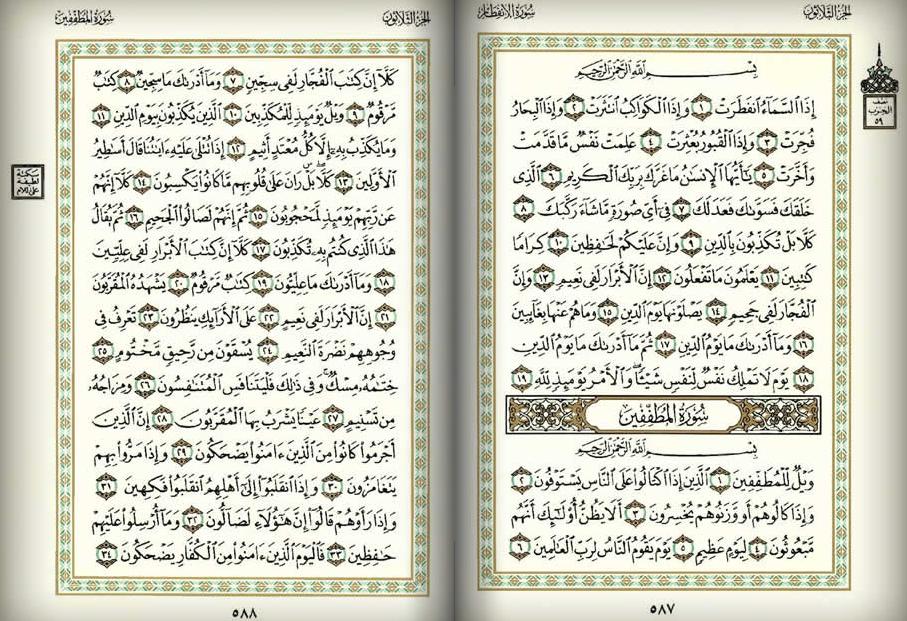 الجزء الثلاثون
سورة الانفطار
بِسْمِ اللَّهِ الرَّحْمَٰنِ الرَّحِيمِ
إِذَا السَّمَاءُ انفَطَرَتْ ١ وَإِذَا الْكَوَاكِبُ انتَثَرَتْ ٢ وَإِذَا الْبِحَارُ
فُجِّرَتْ ٣ وَإِذَا الْقُبُورُ بُعْثِرَتْ ٤ عَلِمَتْ نَفْسٌ مَّا قَدَّمَتْ
وَأَخَّرَتْ ٥ يَٰأَيُّهَا الْإِنسَٰنُ مَا غَرَّكَ بِرَبِّكَ الْكَرِيمِ ٦ الَّذِي
خَلَقَكَ فَسَوَّىٰكَ فَعَدَلَكَ ٧ فِي أَيِّ صُورَةٍ مَّا شَاءَ رَكَّبَكَ ٨
كَلَّا بَلْ تُكَذِّبُونَ بِالدِّينِ ٩ وَإِنَّ عَلَيْكُمْ لَحَٰفِظِينَ ١٠ كِرَامًا
كَٰتِبِينَ ١١ يَعْلَمُونَ مَا تَفْعَلُونَ ١٢ إِنَّ الْأَبْرَارَ لَفِي نَعِيمٍ ١٣ وَإِنَّ
الْفُجَّارَ لَفِي جَحِيمٍ ١٤ يَصْلَوْنَهَا يَوْمَ الدِّينِ ١٥ وَمَا هُمْ عَنْهَا بِغَائِبِينَ
١٦ وَمَا أَدْرَىٰكَ مَا يَوْمُ الدِّينِ ١٧ ثُمَّ مَا أَدْرَىٰكَ مَا يَوْمُ الدِّينِ
١٨ يَوْمَ لَا تَمْلِكُ نَفْسٌ لِّنَفْسٍ شَيْئًا وَالْأَمْرُ يَوْمَئِذٍ لِّلَّهِ ١٩
سُورَةُ الْمُطَفِّفِينَ
بِسْمِ اللَّهِ الرَّحْمَٰنِ الرَّحِيمِ
وَيْلٌ لِّلْمُطَفِّفِينَ ١ الَّذِينَ إِذَا اكْتَالُوا عَلَى النَّاسِ يَسْتَوْفُونَ ٢
وَإِذَا كَالُوهُمْ أَو وَّزَنُوهُمْ يُخْسِرُونَ ٣ أَلَا يَظُنُّ أُولَٰئِكَ أَنَّهُم
مَّبْعُوثُونَ ٤ لِيَوْمٍ عَظِيمٍ ٥ يَوْمَ يَقُومُ النَّاسُ لِرَبِّ الْعَٰلَمِينَ ٦
٥٨٧
نصف
الحزب
٥٩
الجزء الثلاثون
سورة المطففين
كَلَّا إِنَّ كِتَٰبَ الْفُجَّارِ لَفِي سِجِّينٍ ٧ وَمَا أَدْرَىٰكَ مَا سِجِّينٌ ٨ كِتَٰبٌ
مَّرْقُومٌ ٩ وَيْلٌ يَوْمَئِذٍ لِّلْمُكَذِّبِينَ ١٠ الَّذِينَ يُكَذِّبُونَ بِيَوْمِ الدِّينِ ١١
وَمَا يُكَذِّبُ بِهِ إِلَّا كُلُّ مُعْتَدٍ أَثِيمٍ ١٢ إِذَا تُتْلَىٰ عَلَيْهِ ءَايَٰتُنَا قَالَ أَسَٰطِيرُ
الْأَوَّلِينَ ١٣ كَلَّا بَلْ رَانَ عَلَىٰ قُلُوبِهِم مَّا كَانُوا يَكْسِبُونَ ١٤ كَلَّا إِنَّهُمْ
عَن رَّبِّهِمْ يَوْمَئِذٍ لَّمَحْجُوبُونَ ١٥ ثُمَّ إِنَّهُمْ لَصَالُوا الْجَحِيمِ ١٦ ثُمَّ يُقَالُ
هَٰذَا الَّذِي كُنتُم بِهِ تُكَذِّبُونَ ١٧ كَلَّا إِنَّ كِتَٰبَ الْأَبْرَارِ لَفِي عِلِّيِّينَ
١٨ وَمَا أَدْرَىٰكَ مَا عِلِّيُّونَ ١٩ كِتَٰبٌ مَّرْقُومٌ ٢٠ يَشْهَدُهُ الْمُقَرَّبُونَ
٢١ إِنَّ الْأَبْرَارَ لَفِي نَعِيمٍ ٢٢ عَلَى الْأَرَائِكِ يَنظُرُونَ ٢٣ تَعْرِفُ فِي
وُجُوهِهِمْ نَضْرَةَ النَّعِيمِ ٢٤ يُسْقَوْنَ مِن رَّحِيقٍ مَّخْتُومٍ ٢٥
خِتَٰمُهُ مِسْكٌ وَفِي ذَٰلِكَ فَلْيَتَنَافَسِ الْمُتَنَٰفِسُونَ ٢٦ وَمِزَاجُهُ
مِن تَسْنِيمٍ ٢٧ عَيْنًا يَشْرَبُ بِهَا الْمُقَرَّبُونَ ٢٨ إِنَّ الَّذِينَ
أَجْرَمُوا كَانُوا مِنَ الَّذِينَ ءَامَنُوا يَضْحَكُونَ ٢٩ وَإِذَا مَرُّوا بِهِمْ
يَتَغَامَزُونَ ٣٠ وَإِذَا انقَلَبُوا إِلَىٰ أَهْلِهِمُ انقَلَبُوا فَكِهِينَ ٣١
وَإِذَا رَأَوْهُمْ قَالُوا إِنَّ هَٰؤُلَاءِ لَضَالُّونَ ٣٢ وَمَا أُرْسِلُوا عَلَيْهِمْ
حَٰفِظِينَ ٣٣ فَالْيَوْمَ الَّذِينَ ءَامَنُوا مِنَ الْكُفَّارِ يَضْحَكُونَ ٣٤
٥٨٨
سكتة
لطيفة
على اللام